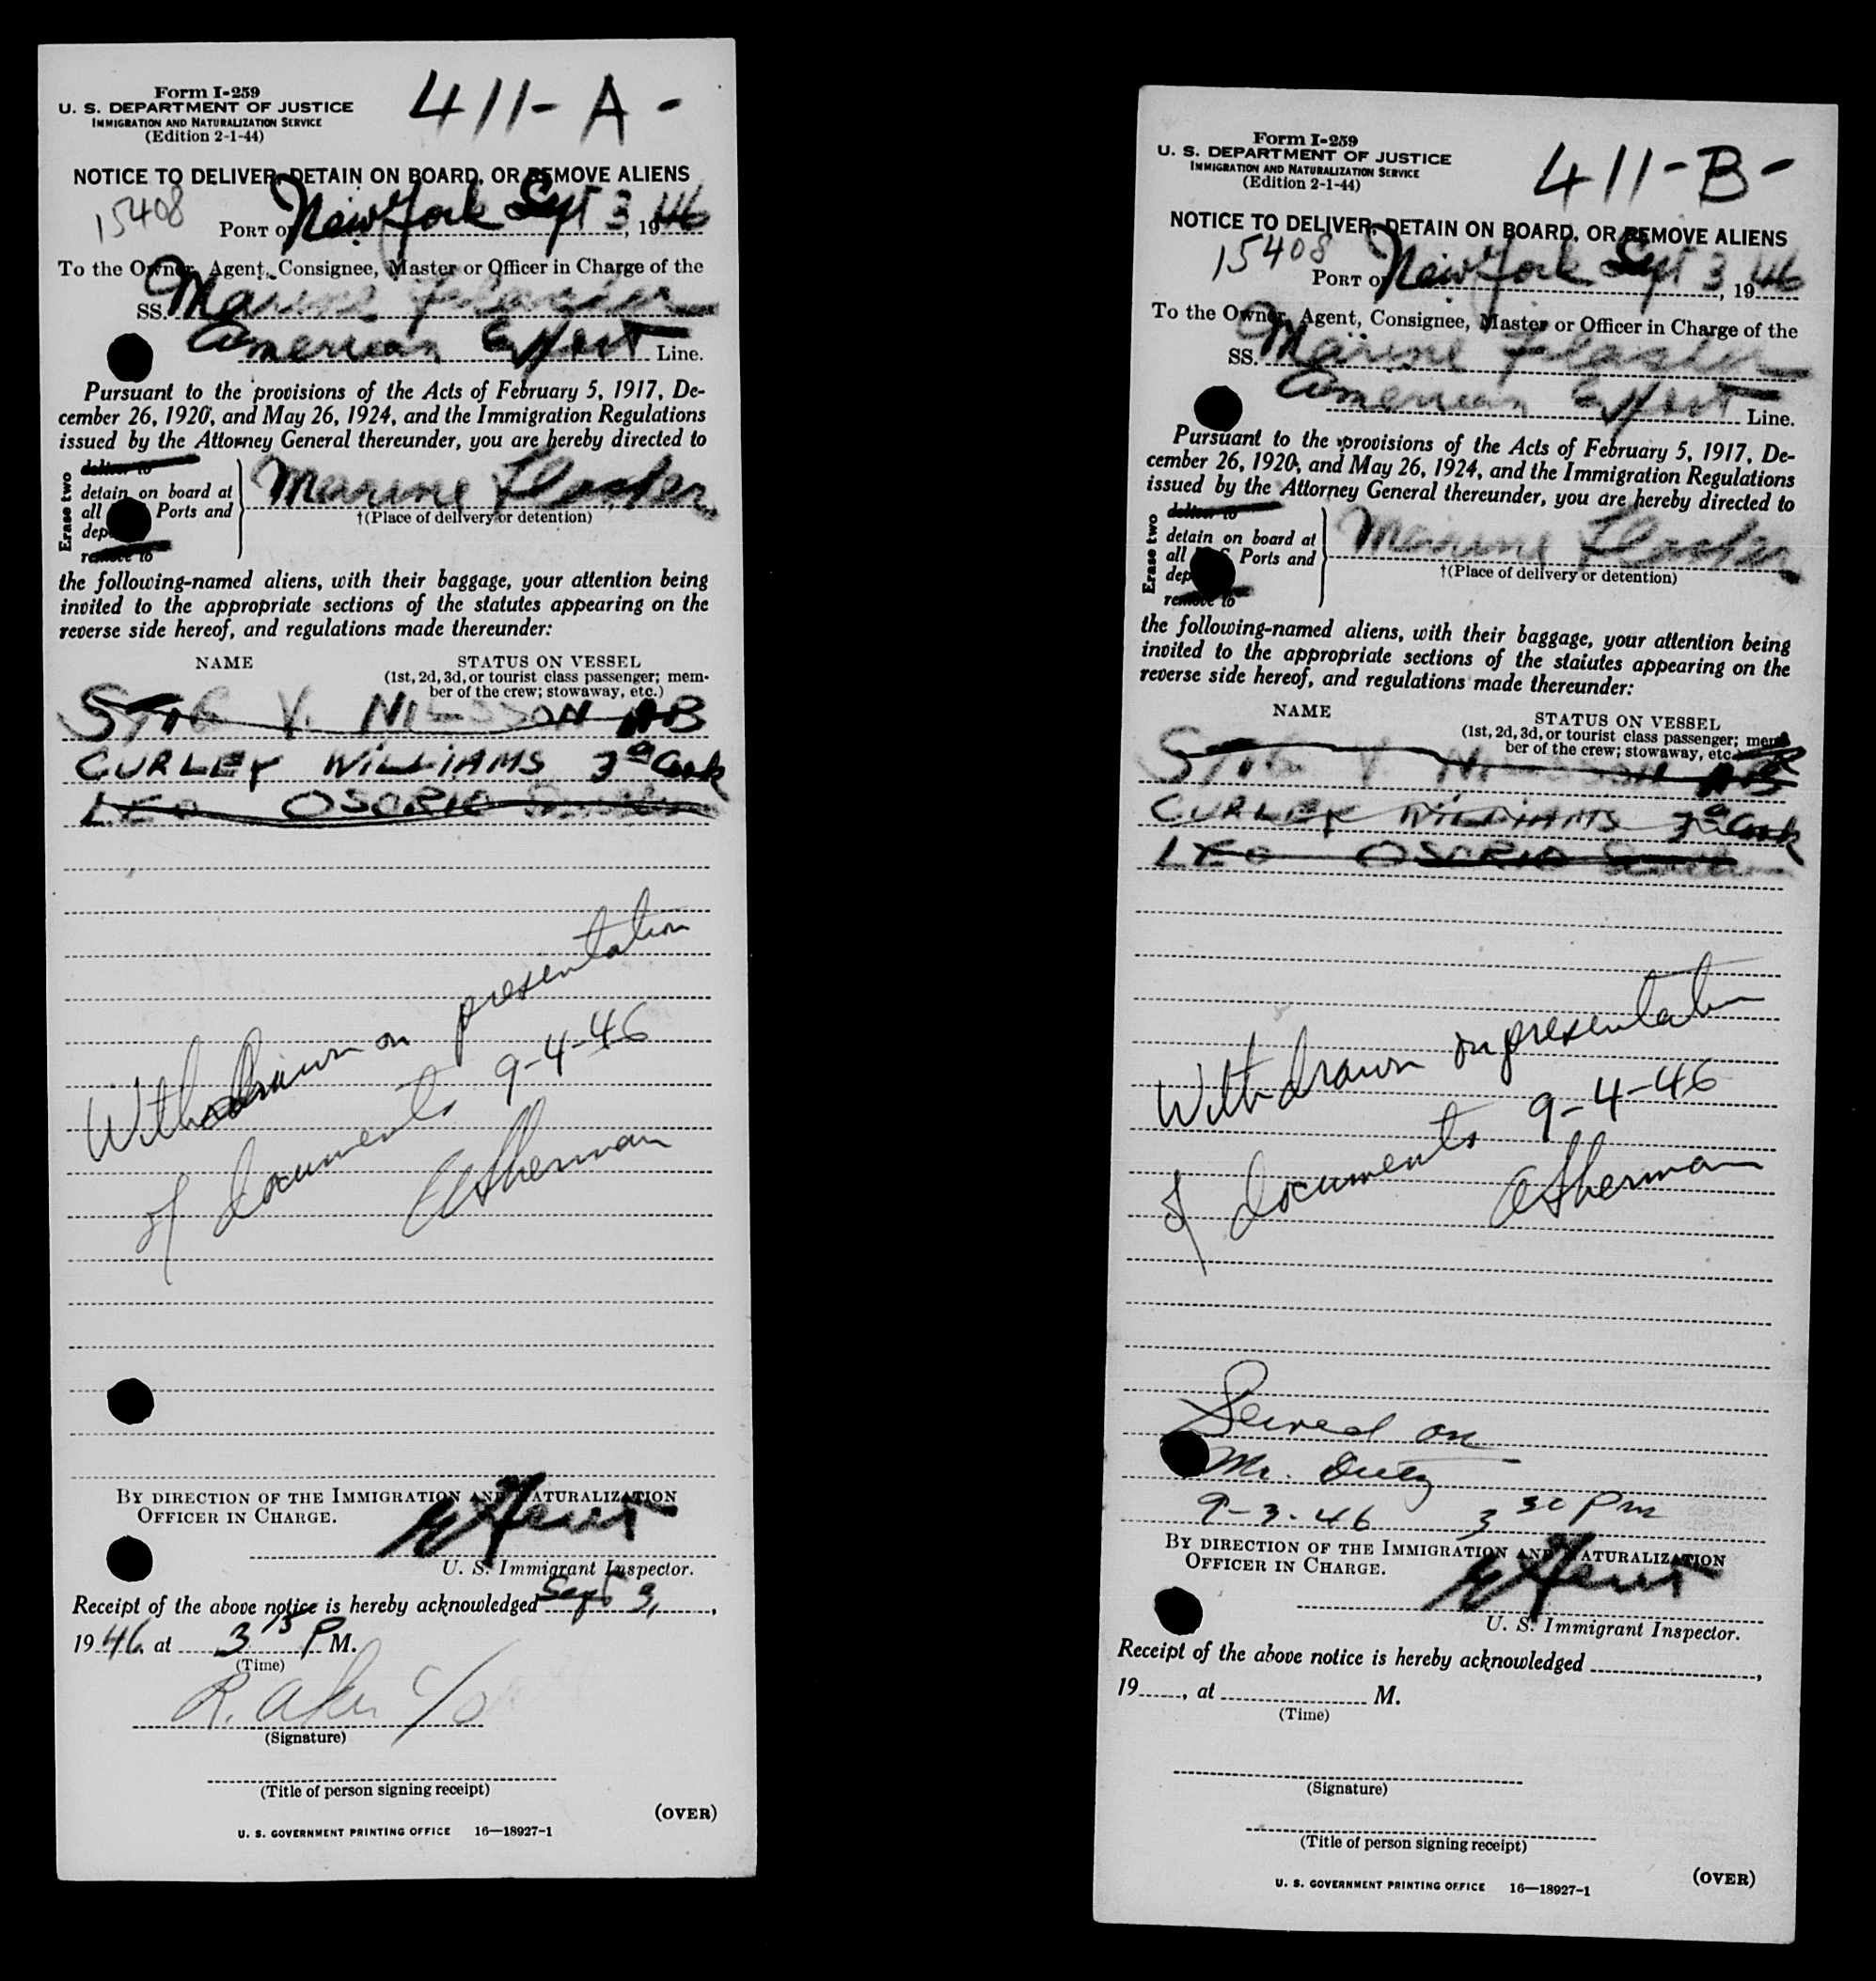 411-A-
Form I-259
U. S. DEPARTMENT OF JUSTICE
IMMIGRATION AND NATURALIZATION SERVICE
(Edition 2-1-44)
NOTICE TO DELIVER, DETAIN ON BOARD, OR REMOVE ALIENS
15408
PORT OF New York Sept 3, 1946
To the Owner, Agent, Consignee, Master or Officer in Charge of the
SS. Marine Flasher
American Export Line.
Pursuant to the provisions of the Acts of February 5, 1917, De-
cember 26, 1920, and May 26, 1924, and the Immigration Regulations
issued by the Attorney General thereunder, you are hereby directed to
Erase two
deliver to
detain on board at
all Ports and
dep
remove to
Marine Flasher
†(Place of delivery or detention)
the following-named aliens, with their baggage, your attention being
invited to the appropriate sections of the statutes appearing on the
reverse side hereof, and regulations made thereunder:
NAME STATUS ON VESSEL
(1st, 2d, 3d, or tourist class passenger; mem-
ber of the crew; stowaway, etc.)
STIG V. NILSSON AB
CURLEY WILLIAMS 3d Cook
LEO OSORIO
Withdrawn on presentation
of documents 9-4-46
Sherman
BY DIRECTION OF THE IMMIGRATION AND NATURALIZATION
OFFICER IN CHARGE.
U. S. Immigrant Inspector.
Receipt of the above notice is hereby acknowledged Sept 3,
1946, at 3 15 P M.
(Time)
R.
(Signature)
(Title of person signing receipt)
(OVER)
U. S. GOVERNMENT PRINTING OFFICE 16—18927-1
411-B-
Form I-259
U. S. DEPARTMENT OF JUSTICE
IMMIGRATION AND NATURALIZATION SERVICE
(Edition 2-1-44)
NOTICE TO DELIVER, DETAIN ON BOARD, OR REMOVE ALIENS
15408
PORT OF New York Sept 3, 1946
To the Owner, Agent, Consignee, Master or Officer in Charge of the
SS. Marine Flasher
American Export Line.
Pursuant to the provisions of the Acts of February 5, 1917, De-
cember 26, 1920, and May 26, 1924, and the Immigration Regulations
issued by the Attorney General thereunder, you are hereby directed to
Erase two
deliver to
detain on board at
all Ports and
dep
remove to
Marine Flasher
†(Place of delivery or detention)
the following-named aliens, with their baggage, your attention being
invited to the appropriate sections of the statutes appearing on the
reverse side hereof, and regulations made thereunder:
NAME STATUS ON VESSEL
(1st, 2d, 3d, or tourist class passenger; mem-
ber of the crew; stowaway, etc.)
STIG V. NILSSON AB
CURLEY WILLIAMS 3d Cook
LEO OSORIO
Withdrawn on presentation
of documents 9-4-46
Sherman
Served on
Mr.
9-3-46 3 30 Pm
BY DIRECTION OF THE IMMIGRATION AND NATURALIZATION
OFFICER IN CHARGE.
U. S. Immigrant Inspector.
Receipt of the above notice is hereby acknowledged ,
19 , at M.
(Time)
(Signature)
(Title of person signing receipt)
(OVER)
U. S. GOVERNMENT PRINTING OFFICE 16—18927-1